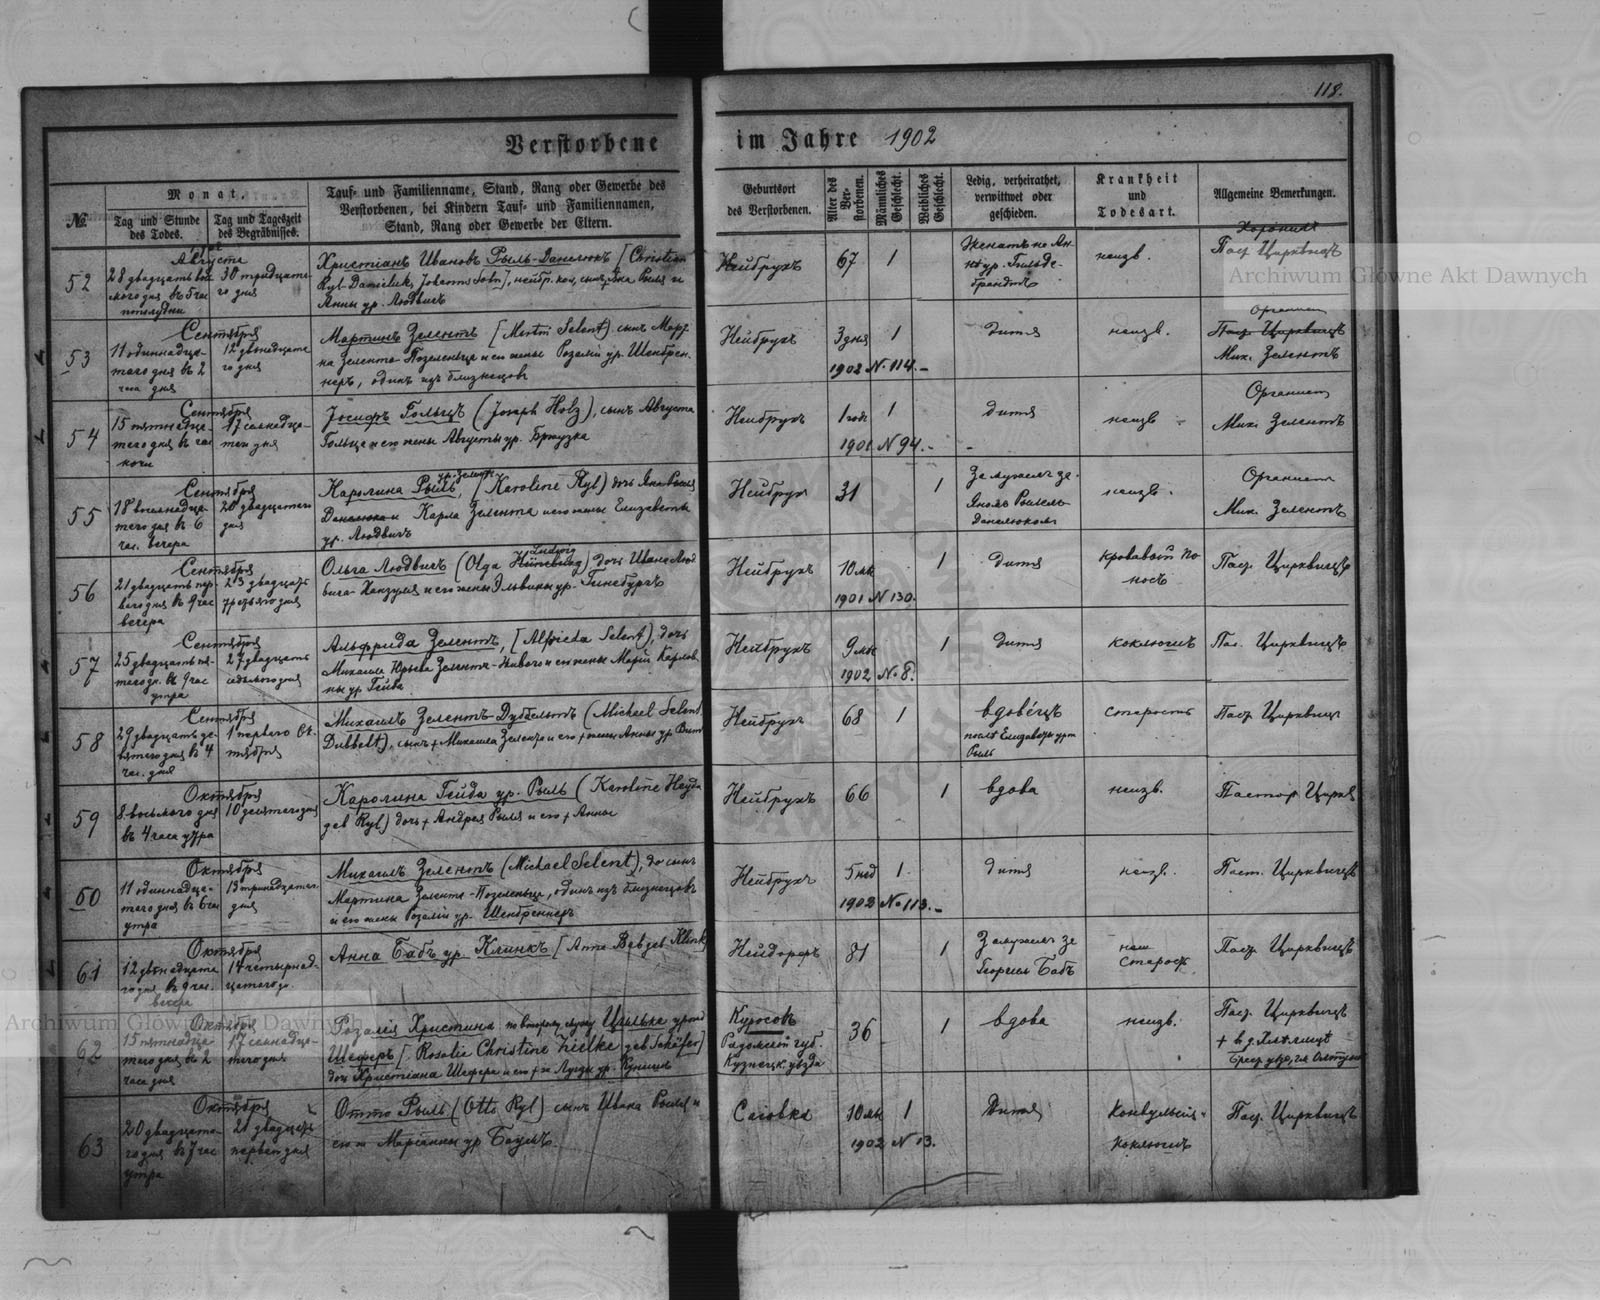 118.
Verstorbene im Jahre 1902
№
Monat.
Tag und Stunde des Todes.
Tag und Tageszeit des Begräbnisses.
Tauf- und Familienname, Stand, Rang oder Gewerbe des
Verstorbenen, bei Kindern Tauf- und Familiennamen,
Stand, Rang oder Gewerbe der Eltern.
Geburtsort
des Verstorbenen.
Alter des Verstorbenen.
Männliches Geschlecht.
Weibliches Geschlecht.
Ledig, verheirathet,
verwittwet oder
geschieden.
Krankheit
und
Todesart.
Allgemeine Bemerkungen.
52
Августа
28 двадцать
30 тридцата-
го дня
Христіанъ Ивановъ Рыль-Данелюкъ [Christian
Ryl-Daniluk, Johanns Sohn],
Анны ур. Людвигъ
Нейбрухъ
67
1
неизв.
Паст. Цирквицъ
53
Сентября
11 одиннадца-
таго дня въ 2
часа дня
12 двѣнадцата
го дня
Мартинъ Зелентъ [Martin Selent) сынъ Марти-
на Зелента-Позеленца и его жены Розаліи ур. Шенбрен-
неръ, одинъ изъ близнецовъ
Нейбрухъ
3 дня
1
1902 N. 114.-
дитя
неизв.
Органист
Паст. Цирквицъ
Мих. Зелентъ
54
Сентября
15 пятнадца-
таго дня въ час
ночи
17 семнадца-
таго дня
Іосифъ Гольцъ (Joseph Holz), сынъ Августа
Гольца и его жены Августы ур. Брузка
Нейбрухъ
1 годъ
1
1901 N 94.-
дитя
неизв
Органист
Мих. Зелентъ
55
Сентября
18 восемнадца-
таго дня въ 6
час. вечера
20 двадцатаго
дня
Каролина Рыль, ур. Зелентъ [Karoline Ryl) дочь
Карла Зелента и его жены Елизаветы
ур. Людвигъ
Нейбрух
31
1
Замужемъ за
Яномъ Рылемъ-
Данелюкомъ
неизв.
Органист
Мих. Зелентъ
56
Сентября
21 двадцать пер-
ваго дня въ 9 час
вечера
23 двадцать
третьяго дня
Ольга Людвигъ (Olga Ludwig) дочь Ивана Люд-
вига и его жены Эльвины ур. Гинебургъ
Нейбрухъ
10 мѣс
1
1901 N 130.
дитя
кровавый по
носъ
Паст. Цирквицъ
57
Сентября
25 двадцать пя-
таго дн. въ 9 час
утра
27 двадцать
седьмого дня
Альфрида Зелентъ, [Alfrieda Selent), дочь
Михаила Юрьева Зелента и его жены Маріи Карлов-
ны ур. Гейда
Нейбрухъ
9 мѣс
1
1902 N. 8.
дитя
коклюшъ
Пас. Цирквицъ
58
Сентября
29 двадцать де-
вятаго дня въ 4
час. дня
1 перваго Ок-
тября
Михаилъ Зелентъ-Дуббельтъ (Michael Selent
Dubbelt), сынъ + Михаила Зелента и его + жены Анны ур.
Нейбрухъ
68
1
вдовецъ
послѣ Елизаветы урж
Рыль
старость
Паст. Цирквиц
59
Октября
8 восьмого дня
въ 4 часа утра
10 десятаго дня
Каролина Гейда ур. Рыль (Karoline Heyda
geb Ryl) дочь + Андрея Рыля и его + Анны
Нейбрухъ
66
1
вдова
неизв.
Пастор Цирк
60
Октября
11 одиннадца-
таго дня въ 6 час
утра
13 тринадцатаго
дня
Михаилъ Зелентъ (Michael Selent), сынъ
Мартина Зелента-Позеленца, одинъ изъ близнецовъ
и его жены Розаліи ур. Шенбреннеръ
Нейбрухъ
5 нед
1.
1902 No 113.-
дитя
неизв.
Паст. Цирквицъ
61
Октября
12 двѣнадцата
го дня въ 9 час.
вечера
14 четырнад-
цатаго дн.
Анна Бабъ ур. Клинкъ [Anna Bab geb Klink]
Нейдорфъ
81
1
Замужемъ за
Георгомъ Бабъ
старость
Паст. Цирквицъ
62
Октября
15 пятнадца
таго дня въ 2
часа дня
17 семнадца-
таго дня
Розалія Христина по второму мужу Цильке урожд
Шеферъ [Rosalie Christine Zielke geb Schäfer]
дочь Христіана Шефера и его
Куросовъ
Радомской губ.
Кузнецк. уѣзда
36
1
вдова
неизв.
Паст. Цирквицъ
63
Октября
20 двадцата-
го дня въ 7 час
утра
21 двадцать
перваго дня
Отто Рыль (Otto Ryl) сынъ Ивана Рыля и
его ж Маріанны ур Баумъ.
Саювка
10 мѣс
1
1902 N 13.
Дитя
Конвульсіи
коклюшъ
Паст. Цирквицъ
Archiwum Główne Akt Dawnych
Archiwum Główne Akt Dawnych